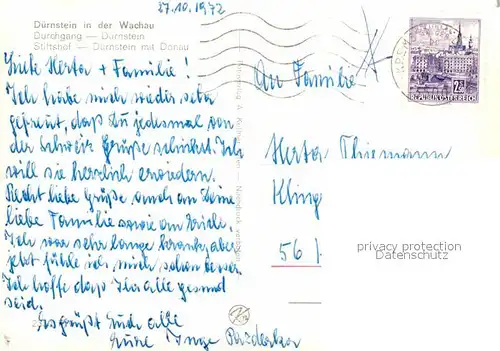 27.10.1972
Dürnstein in der Wachau
Durchgang — Dürnstein
Stiftshof — Dürnstein mit Donau
Liebe Herta + Familie!
Ich habe mich wieder sehr
gefreut, daß Du jedesmal von
der Schweiz Grüße schickst. Ich
will sie herzlich erwidern.
Recht liebe Grüße auch an Deine
liebe Familie sowie an Erich.
Ich war sehr lange krank, aber
jetzt fühle ich mich schon besser.
Ich hoffe daß Ihr alle gesund
seid.
Es grüßt Euch alle
Eure Inge
An Familie
Herta Thiemann
Kling
56
REPUBLIK ÖSTERREICH
privacy protection